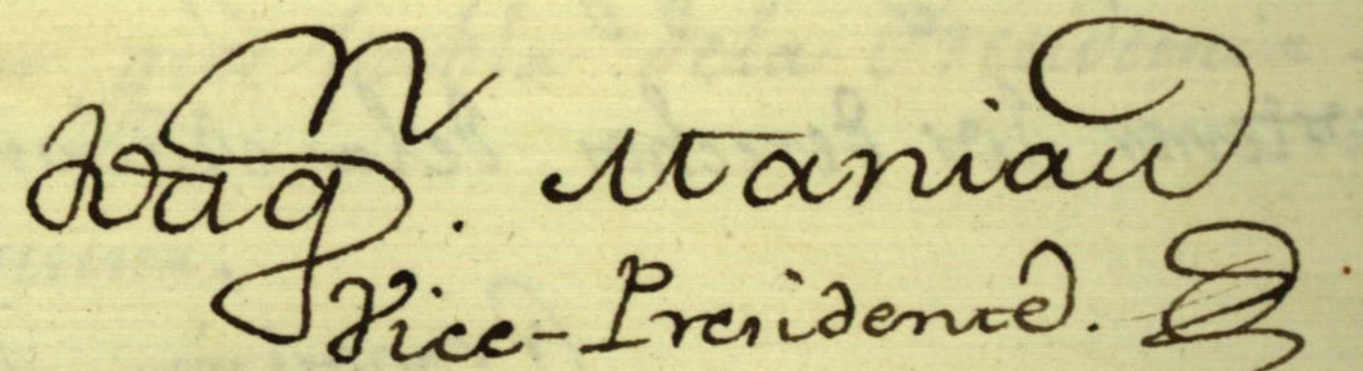 Joaqⁿ. Maniau
Vice-Presidente.